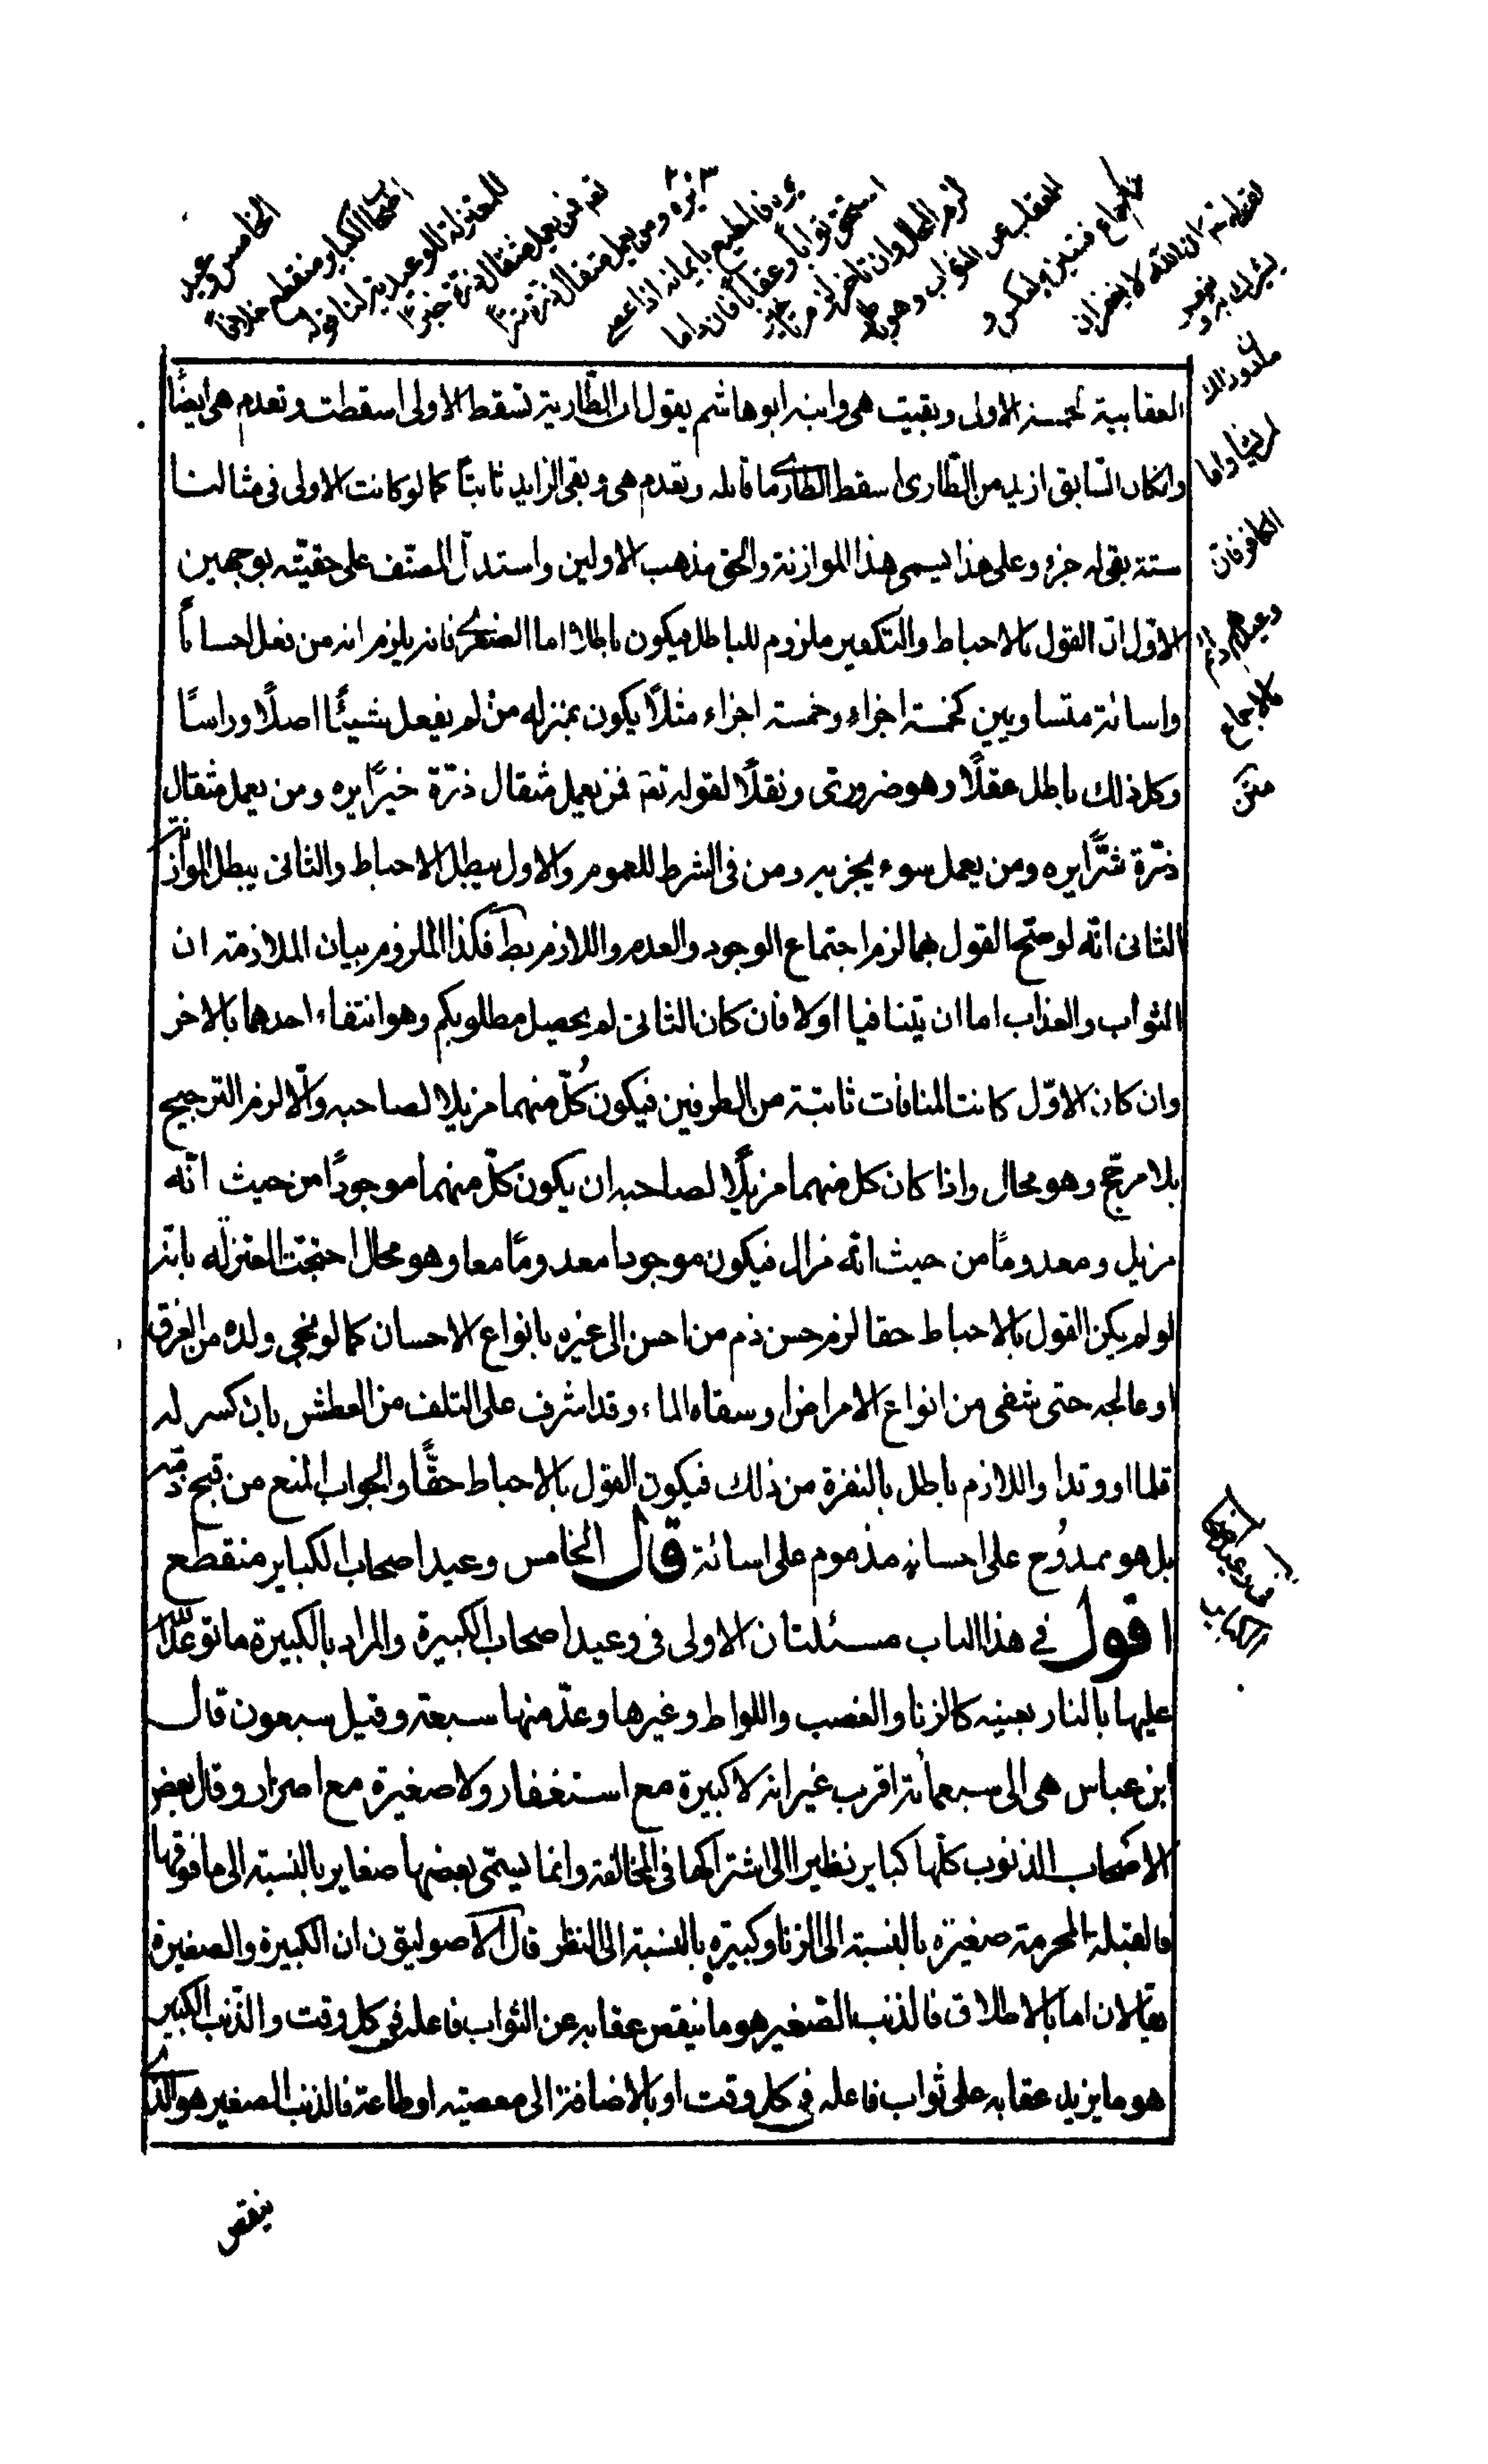 ٢٠٣
الخامس وعيد
اصحاب الكباير منقطع خلافا
للمعتزلة الوعيدية لنا قوله
تعم فمن يعمل مثقال ذرة خيرا
يره ومن يعمل مثقال ذرة شرا
يره فالمطيع بايمانه اذا عصى
استحق ثوابا وعقابا فان داما
لزم المحال وان تاخر
العقاب عن الثواب وهو بط
بالاجماع فتعين العكس و
لقوله تم ان الله لا يغفر ان
يشرك به و يغفر
ما دون ذلك
لمن يشاء واما
الكافر فان
وعيدهم دائم
بالاجماع
متن
العقابية لخمسة الاولى وبقيت هى وابنه ابو هاشم يقول ان الطارية تسقط الاولى اسقطت وتعدم هى ايضًا
وان كان السابق ازيد من الطارى اسقط الطارى ما قابله وتعدم هى و بقى الزايد ثابتًا كما لو كانت الاولى فى مثالنا
ستة بقى له جزء وعلى هذا يسمى هذا الموازنة والحق مذهب الاولين واستدل المصنف على حقيته بوجهين
الاول ان القول بالاحباط والتكفير ملزوم للباطل فيكون باطلا اما الصغرى فانه يلزم انه من فعل احسانًا
واسائة متساويين كخمسة اجزاء وخمسة اجزاء مثلًا يكون بمنزله من لم يفعل شيئًا اصلًا وراسًا
وكل ذلك باطل عقلًا وهو ضرورى ونقلًا لقوله تعم فمن يعمل مثقال ذرة خيرًا يره ومن يعمل مثقال
ذرة شرًّا يره ومن يعمل سوء يجز به ومن فى الشرط للعموم والاول يبطل الاحباط والثانى يبطل الموازنة
الثانى انه لو صح القول بهما لزم اجتماع الوجود والعدم واللازم بط فكذا الملزوم بيان الملازمة ان
الثواب والعذاب اما ان يتنافيا اولا فان كان الثانى لم يحصل مطلوبكم وهو انتفاء احدهما بالاخر
وان كان الاوّل كانت المنافات ثابتة من الطرفين فيكون كُلّ منهما مزيلا لصاحبه والّا لزم الترجيح
بلا مرجح وهو محال واذا كان كل منهما مزيلًا لصاحبه ان يكون كلّ منهما موجودًا من حيث انّه
مزيل ومعدومًا من حيث انّه مزال فيكون موجودا معدومًا معا وهو محال احتجت المعتزله بانه
لو لم يكن القول بالاحباط حقا لزم حسن ذم من احسن الى غيره بانواع الاحسان كما لو نجى ولده من الغرق
او عالجه حتى شفى من انواع الامراض او سقاه الماء وقد اشرف على التلف من العطش بان كسر له
قلما او وتدا واللازم باطل بالنفرة من ذلك فيكون القول بالاحباط حقًّا والجواب المنع من قبح ذمّه
بل هو ممدُوح على احسانه مذموم على اسائة قال الخامس وعيد اصحاب الكباير منقطع
اقول فى هذا الباب مسئلتان الاولى فى وعيد اصحاب الكبيرة والمراد بالكبيرة ما توعد الله
عليها بالنار بعينه كالزنا والغصب واللواط وغيرها وعدّ منها سبعة وقيل سبعون قال
ابن عباس هى الى سبعمائة اقرب غير انه لا كبيرة مع استغفار ولا صغيرة مع اصرار وقال بعض
الاصحاب الذنوب كلّها كباير نظيرا الى اشتراكها فى المخالفة وانما يسمّى بعضها صغاير بالنسبة الى ما فوقها
فالقبلة المحرمة صغيرة بالنسبة الى الزنا وكبيره بالنسبة الى النظر قال الاصوليون ان الكبيرة والصغيرة
يقالان اما بالاطلاق فالذنب الصغير هو ما ينقص عقابه عن الثواب فاعله فى كل وقت والذنب الكبير
هو ما يزيد عقابه على ثواب فاعله فى كل وقت او بالاضافة الى معصيته او طاعة فالذنب الصغير هو الذى
ينقص